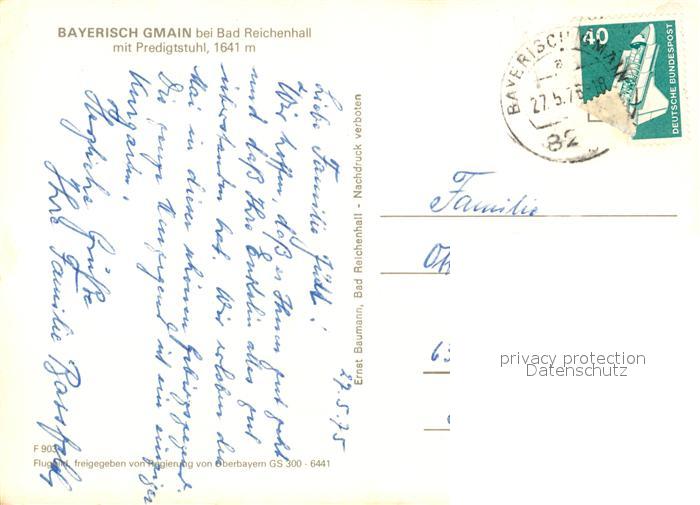 BAYERISCH GMAIN bei Bad Reichenhall
mit Predigtstuhl, 1641 m
27.5.75
Liebe Familie !
Wir hoffen, daß es Ihnen gut geht
und daß Ihre Enkelin alles gut
überstanden hat. Wir erleben den
Mai in dieser schönen Gebirgsgegend.
Die ganze Umgegend ist ein einziger
Kurgarten.
Herzliche Grüße
Ihre Familie
F 903
Flugbild, freigegeben von Regierung von Oberbayern GS 300 - 6441
Ernst Baumann, Bad Reichenhall - Nachdruck verboten
BAYERISCH GMAIN
a
27.5.75
82
40
DEUTSCHE BUNDESPOST
Familie
privacy protection
Datenschutz